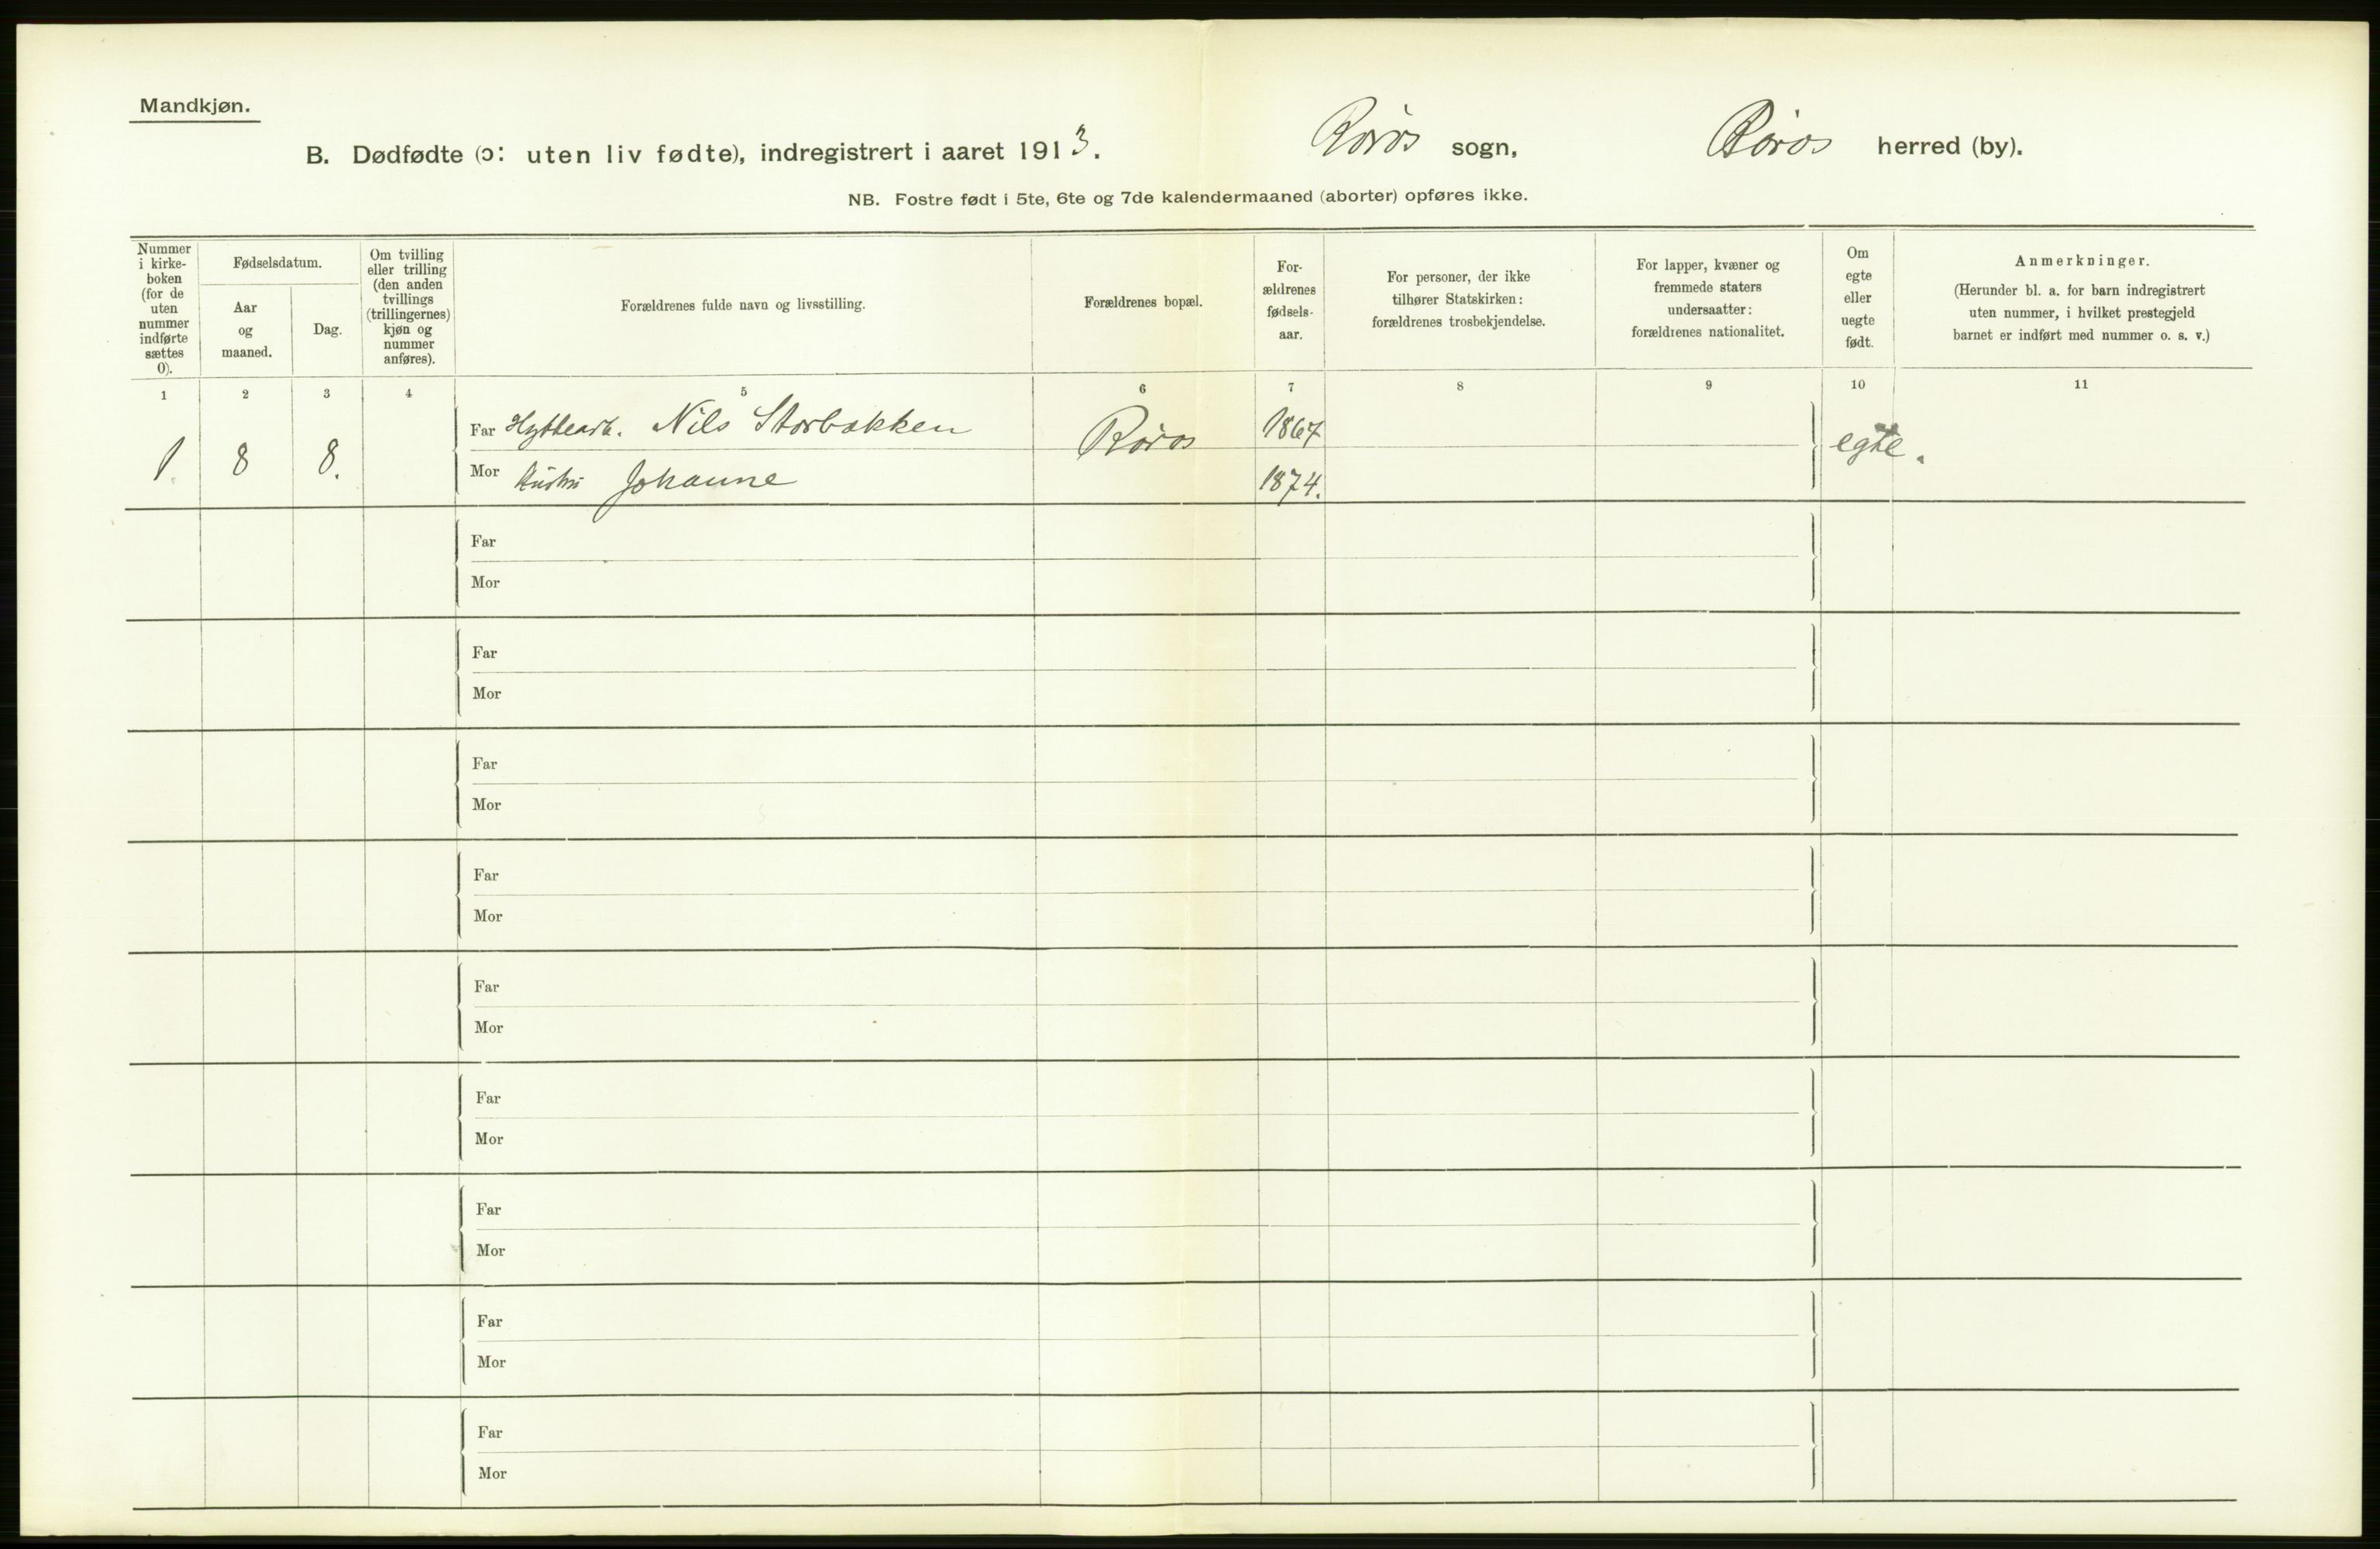 Mandkjøn.
B. Dødfødte (ɔ: uten liv fødte), indregistrert i aaret 1913. Røros sogn, Røros herred (by).
NB. Fostre født i 5te, 6te og 7de kalendermaaned (aborter) opføres ikke.
Nummer
i kirke-
boken
(for de
uten
nummer
indførte
sættes
0).
Fødselsdatum.
Aar
og
maaned.
Dag.
Om tvilling
eller trilling
(den anden
tvillings
(trillingernes)
kjøn og
nummer
anføres).
Forældrenes fulde navn og livsstilling.
Forældrenes bopæl.
For-
ældrenes
fødsels-
aar.
For personer, der ikke
tilhører Statskirken:
forældrenes trosbekjendelse.
For lapper, kvæner og
fremmede staters
undersaatter:
forældrenes nationalitet.
Om
egte
eller
uegte
født.
Anmerkninger.
(Herunder bl. a. for barn indregistrert
uten nummer, i hvilket prestegjeld
barnet er indført med nummer o. s. v.)
1 2 3 4 5 6 7 8 9 10 11
1. 8 8. Far Hyttearb. Nils Storbakken Røros 1867 egte.
Mor Hustru Johanne 1874.
Far
Mor
Far
Mor
Far
Mor
Far
Mor
Far
Mor
Far
Mor
Far
Mor
Far
Mor
Far
Mor